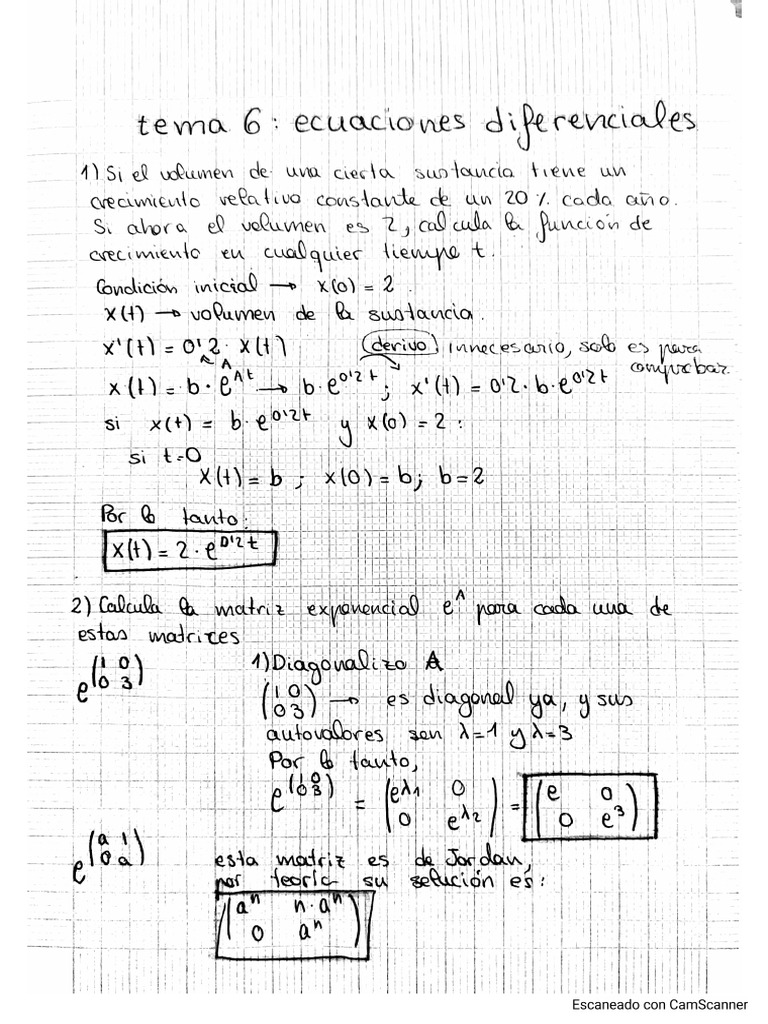 tema 6: ecuaciones diferenciales
1) Si el volumen de una cierta sustancia tiene un
crecimiento relativo constante de un 20 % cada año.
Si ahora el volumen es 2, calcula la función de
crecimiento en cualquier tiempo t.
Condición inicial → x(0) = 2.
x(t) → volumen de la sustancia.
x'(t) = 0'2 · x(t) (derivo) innecesario, solo es para comprobar
A
x(t) = b · e^{At} → b · e^{0'2t}; x'(t) = 0'2 · b · e^{0'2t}
si x(t) = b · e^{0'2t} y x(0) = 2:
si t=0
x(t) = b ; x(0) = b; b = 2
Por lo tanto:
x(t) = 2 · e^{0'2t}
2) Calcula la matriz exponencial e^A para cada una de
estas matrices
e^(1 0
0 3)
1) Diagonalizo A
(1 0
0 3) → es diagonal ya, y sus
autovalores son λ=1 y λ=3
Por lo tanto,
e^(1 0
0 3) = (e^{λ1} 0
0 e^{λ2}) = (e 0
0 e^3)
e^(a 1
0 a)
esta matriz es de Jordan,
por teoría su solución es:
(a^n n·a^n
0 a^n)
Escaneado con CamScanner